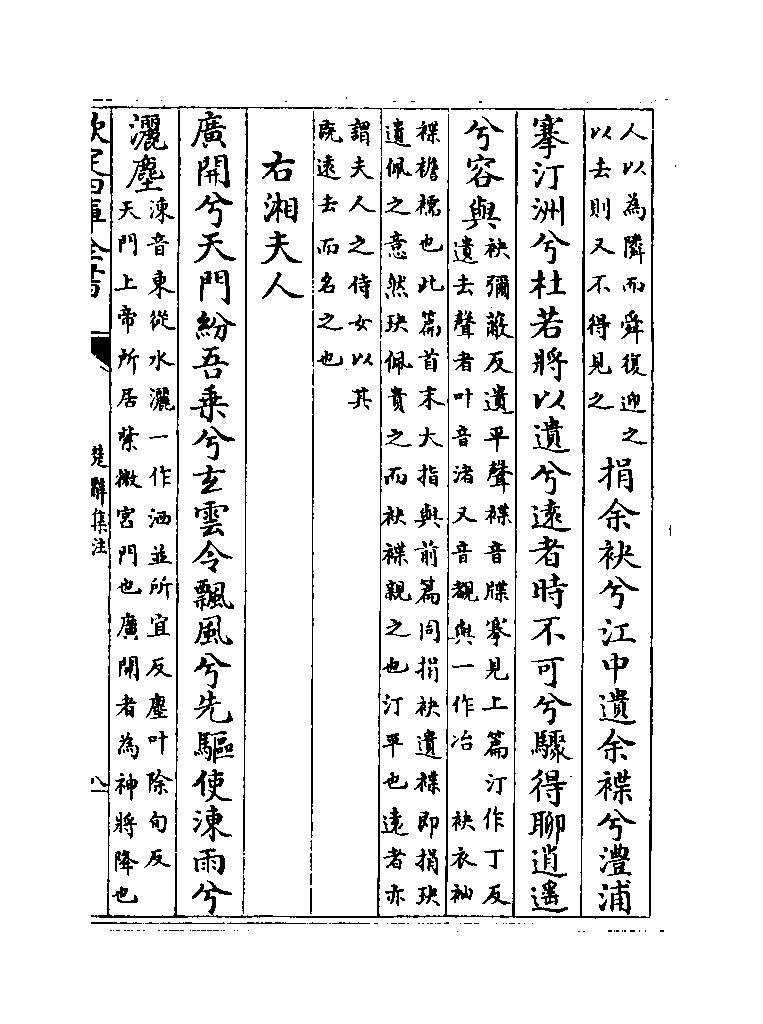 人以為隣而舜復迎之
以去則又不得見之
捐余袂兮江中遺余褋兮澧浦
搴汀洲兮杜若將以遺兮遠者時不可兮驟得聊逍遙
兮容與
袂彌蔽反遺平聲褋音牒搴見上篇汀作丁反
遺去聲者叶音渚又音覩與一作冶 袂衣袖
褋襜襦也此篇首末大指與前篇同捐袂遺褋即捐玦
遺佩之意然玦佩貴之而袂褋親之也汀平也遠者亦
謂夫人之侍女以其
既遠去而名之也
右湘夫人
廣開兮天門紛吾乗兮玄雲令飄風兮先驅使涷雨兮
灑塵
涷音東從水灑一作洒並所宜反塵叶除旬反
天門上帝所居紫微宮門也廣開者為神將降也
欽定四庫全書
楚辭集注
八